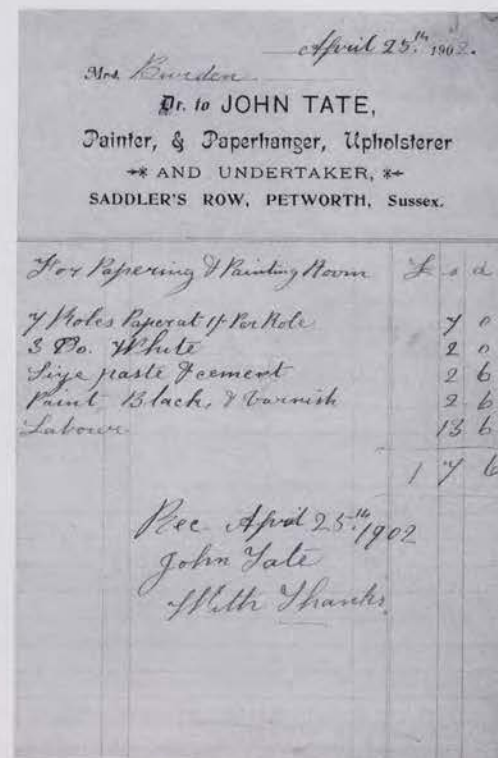 April 25.th 1902.
Mrs. Burden
Dr. to JOHN TATE,
Painter, & Paperhanger, Upholsterer
AND UNDERTAKER,
SADDLER'S ROW, PETWORTH, Sussex.
For Papering & Painting Room £ s d
7 Roles Paper at 1/ Per Role 7 0
3 Do. White 2 0
Size paste & cement 2 6
Paint, Black, & Varnish 2 6
Labour 13 6
1 7 6
Rec April 25.th 1902
John Tate
With Thanks